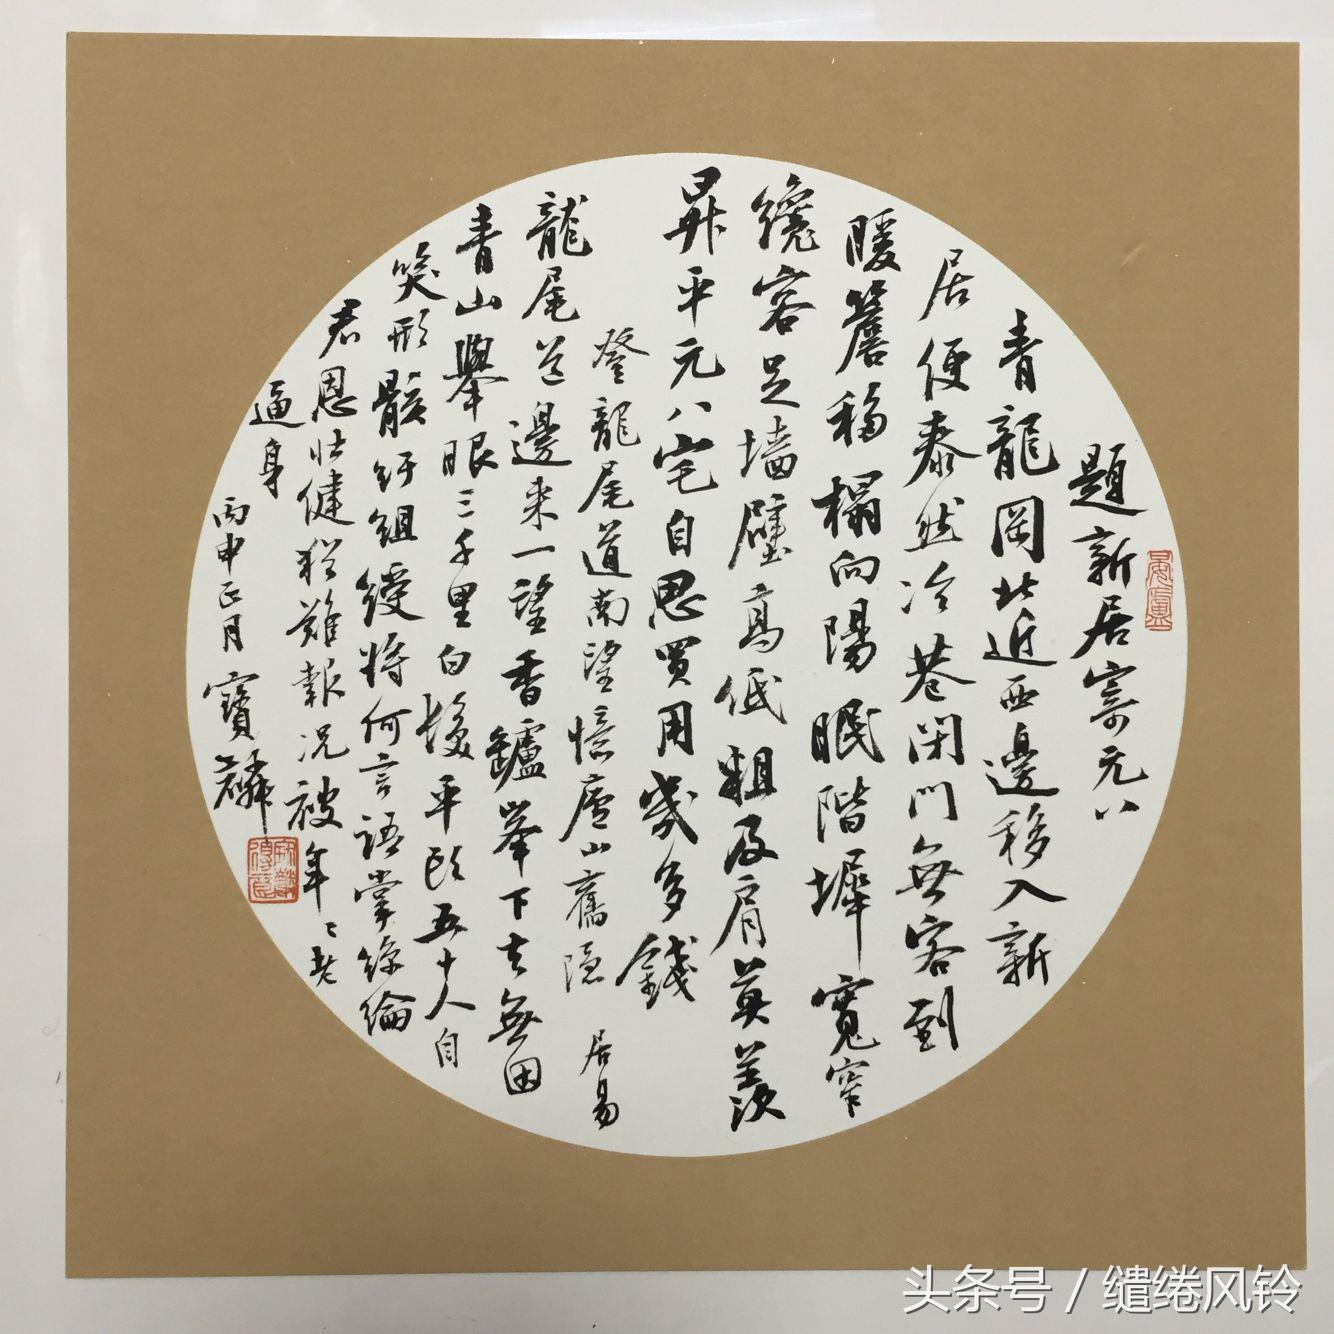 題新居寄元八
青龍岡北近西邊移入新
居便泰然冷巷閉門無客到
暖簷移榻向陽眠階墀寬窄
纔容足墙壁高低粗及肩莫羨
昇平元八宅自思買用幾多錢
登龍尾道南望憶廬山舊隐 居易
龍尾道邊来一望香鑪峯下去無因
青山舉眼三千里白髮平頭五十人自
笑形骸紆組綬將何言語掌絲綸
君恩壯健猶難報况被年〻老
逼身
丙申正月 寶麟
头条号 / 缱绻风铃